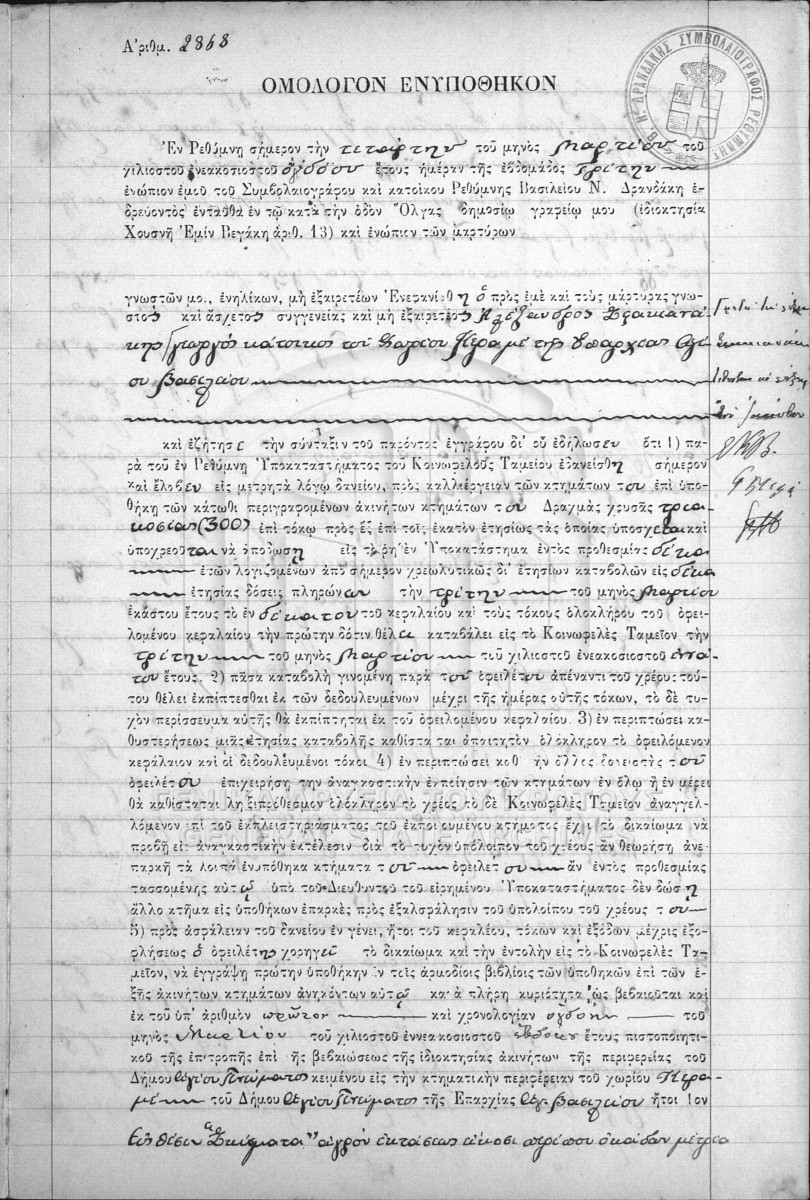 Ἀριθμ. 2868
ΟΜΟΛΟΓΟΝ ΕΝΥΠΟΘΗΚΟΝ
Β. Ν. ΔΡΑΝΔΑΚΗΣ ΣΥΜΒΟΛΑΙΟΓΡΑΦΟΣ ΡΕΘΥΜΝΗΣ
Ἐν Ρεθύμνῃ σήμερον τὴν τετάρτην τοῦ μηνὸς Μαρτίου τοῦ
χιλιοστοῦ ἐνεακοσιοστοῦ ὀγδόου ἔτους ἡμέραν τῆς ἑβδομάδος Τρίτην
ἐνώπιον ἐμοῦ τοῦ Συμβολαιογράφου καὶ κατοίκου Ρεθύμνης Βασιλείου Ν. Δρανδάκη ἑ-
δρεύοντος ἐνταῦθα ἐν τῷ κατὰ τὴν ὁδὸν Ὄλγας δημοσίῳ γραφείῳ μου (ἰδιοκτησία
Χουσνῆ Ἐμὶν Βεγάκη ἀριθ. 13) καὶ ἐνώπιον τῶν μαρτύρων
γνωστῶν μοι, ἐνηλίκων, μὴ ἐξαιρετέων Ἐνεφανίσθη ὁ πρὸς ἐμὲ καὶ τοὺς μάρτυρας γνω-
στὸς καὶ ἄσχετος συγγενείας καὶ μὴ ἐξαιρετέος Ἀλέξανδρος Σφακιανά-
κης Γιωργὸς κάτοικος τοῦ χωρίου Κεραμέ τῆς Ἐπαρχίας Ἁγί-
ου Βασιλείου
καὶ ἐζήτησε τὴν σύνταξιν τοῦ παρόντος ἐγγράφου δι' οὗ ἐδήλωσεν ὅτι 1) πα-
ρὰ τοῦ ἐν Ρεθύμνῃ Ὑποκαταστήματος τοῦ Κοινωφελοῦς Ταμείου ἐδανείσθη σήμερον
καὶ ἔλαβεν εἰς μετρητὰ λόγῳ δανείου, πρὸς καλλιέργειαν τῶν κτημάτων του ἐπὶ ὑπο-
θήκῃ τῶν κάτωθι περιγραφομένων ἀκινήτων κτημάτων του Δραχμὰς χρυσᾶς τρια-
κοσίας (300) ἐπὶ τόκῳ πρὸς ἓξ ἐπὶ τοῖς ἑκατὸν ἐτησίως τὰς ὁποίας ὑπόσχεται καὶ
ὑποχρεοῦται νὰ ἀποδώσῃ εἰς τὸ ῥηθὲν Ὑποκατάστημα ἐντὸς προθεσμίας δέκα
ἐτῶν λογιζομένων ἀπὸ σήμερον χρεωλυτικῶς δι' ἐτησίων καταβολῶν εἰς δέκα
ἐτησίας δόσεις πληρώνων τὴν τρίτην τοῦ μηνὸς Μαρτίου
ἑκάστου ἔτους τὸ ἓν δέκατον τοῦ κεφαλαίου καὶ τοὺς τόκους ὁλοκλήρου τοῦ ὀφει-
λομένου κεφαλαίου τὴν πρώτην δόσιν θέλει καταβάλει εἰς τὸ Κοινωφελὲς Ταμεῖον τὴν
τρίτην τοῦ μηνὸς Μαρτίου τοῦ χιλιοστοῦ ἐνεακοσιοστοῦ ἐννά-
του ἔτους. 2) πᾶσα καταβολὴ γινομένη παρὰ τοῦ ὀφειλέτου ἀπέναντι τοῦ χρέους τού-
του θέλει ἐκπίπτεσθαι ἐκ τῶν δεδουλευμένων μέχρι τῆς ἡμέρας αὐτῆς τόκων, τὸ δὲ τυ-
χὸν περίσσευμα αὐτῆς θὰ ἐκπίπτηται ἐκ τοῦ ὀφειλομένου κεφαλαίου. 3) ἐν περιπτώσει κα-
θυστερήσεως μιᾶς ἐτησίας καταβολῆς καθίσταται ἀπαιτητὸν ὁλόκληρον τὸ ὀφειλόμενον
κεφάλαιον καὶ οἱ δεδουλευμένοι τόκοι 4) ἐν περιπτώσει καθ' ἣν ἄλλος δανειστὴς τοῦ
ὀφειλέτου ἐπιχειρήσῃ τὴν ἀναγκαστικὴν ἐκποίησιν τῶν κτημάτων ἐν ὅλῳ ἢ ἐν μέρει
θὰ καθίσταται ληξιπρόθεσμον ὁλόκληρον τὸ χρέος τὸ δὲ Κοινωφελὲς Ταμεῖον ἀναγγελ-
λόμενον ἐπὶ τοῦ ἐκπλειστηριάσματος τοῦ ἐκποιουμένου κτήματος ἔχει τὸ δικαίωμα νὰ
προβῇ εἰς ἀναγκαστικὴν ἐκτέλεσιν διὰ τὸ τυχὸν ὑπόλοιπον τοῦ χρέους ἂν θεωρήσῃ ἀνε-
παρκῆ τὰ λοιπὰ ἐνυπόθηκα κτήματα τοῦ ὀφειλέτου ἂν ἐντὸς προθεσμίας
τασσομένης αὐτῷ ὑπὸ τοῦ Διευθυντοῦ τοῦ εἰρημένου Ὑποκαταστήματος δὲν δώσῃ
ἄλλο κτῆμα εἰς ὑποθήκην ἐπαρκὲς πρὸς ἐξασφάλησιν τοῦ ὑπολοίπου τοῦ χρέους του
5) πρὸς ἀσφάλειαν τοῦ δανείου ἐν γένει, ἤτοι τοῦ κεφαλέου, τόκων καὶ ἐξόδων μέχρις ἐξο-
φλήσεως ὁ ὀφειλέτης χορηγεῖ τὸ δικαίωμα καὶ τὴν ἐντολὴν εἰς τὸ Κοινωφελὲς Τα-
μεῖον, νὰ ἐγγράψῃ πρώτην ὑποθήκην ἐν τοῖς ἁρμοδίοις βιβλίοις τῶν ὑποθηκῶν ἐπὶ τῶν ἑ-
ξῆς ἀκινήτων κτημάτων ἀνηκόντων αὐτῷ κατὰ πλήρη κυριότητα ὡς βεβαιοῦται καὶ
ἐκ τοῦ ὑπ' ἀριθμὸν πρῶτον καὶ χρονολογίαν ὀγδόην τοῦ
μηνὸς Μαρτίου τοῦ χιλιοστοῦ ἐννεακοσιοστοῦ ἑβδόμου ἔτους πιστοποιητι-
κοῦ τῆς ἐπιτροπῆς ἐπὶ τῆς βεβαιώσεως τῆς ἰδιοκτησίας ἀκινήτων τῆς περιφερείας τοῦ
Δήμου Ἁγίου Πνεύματος κειμένου εἰς τὴν κτηματικὴν περιφέρειαν τοῦ χωρίου Κερα-
μέ τοῦ Δήμου Ἁγίου Πνεύματος τῆς Ἐπαρχίας Ἁγ. Βασιλείου ἤτοι 1ον
Εἰς θέσιν ἀγρὸν ἐκτάσεως εἴκοσι